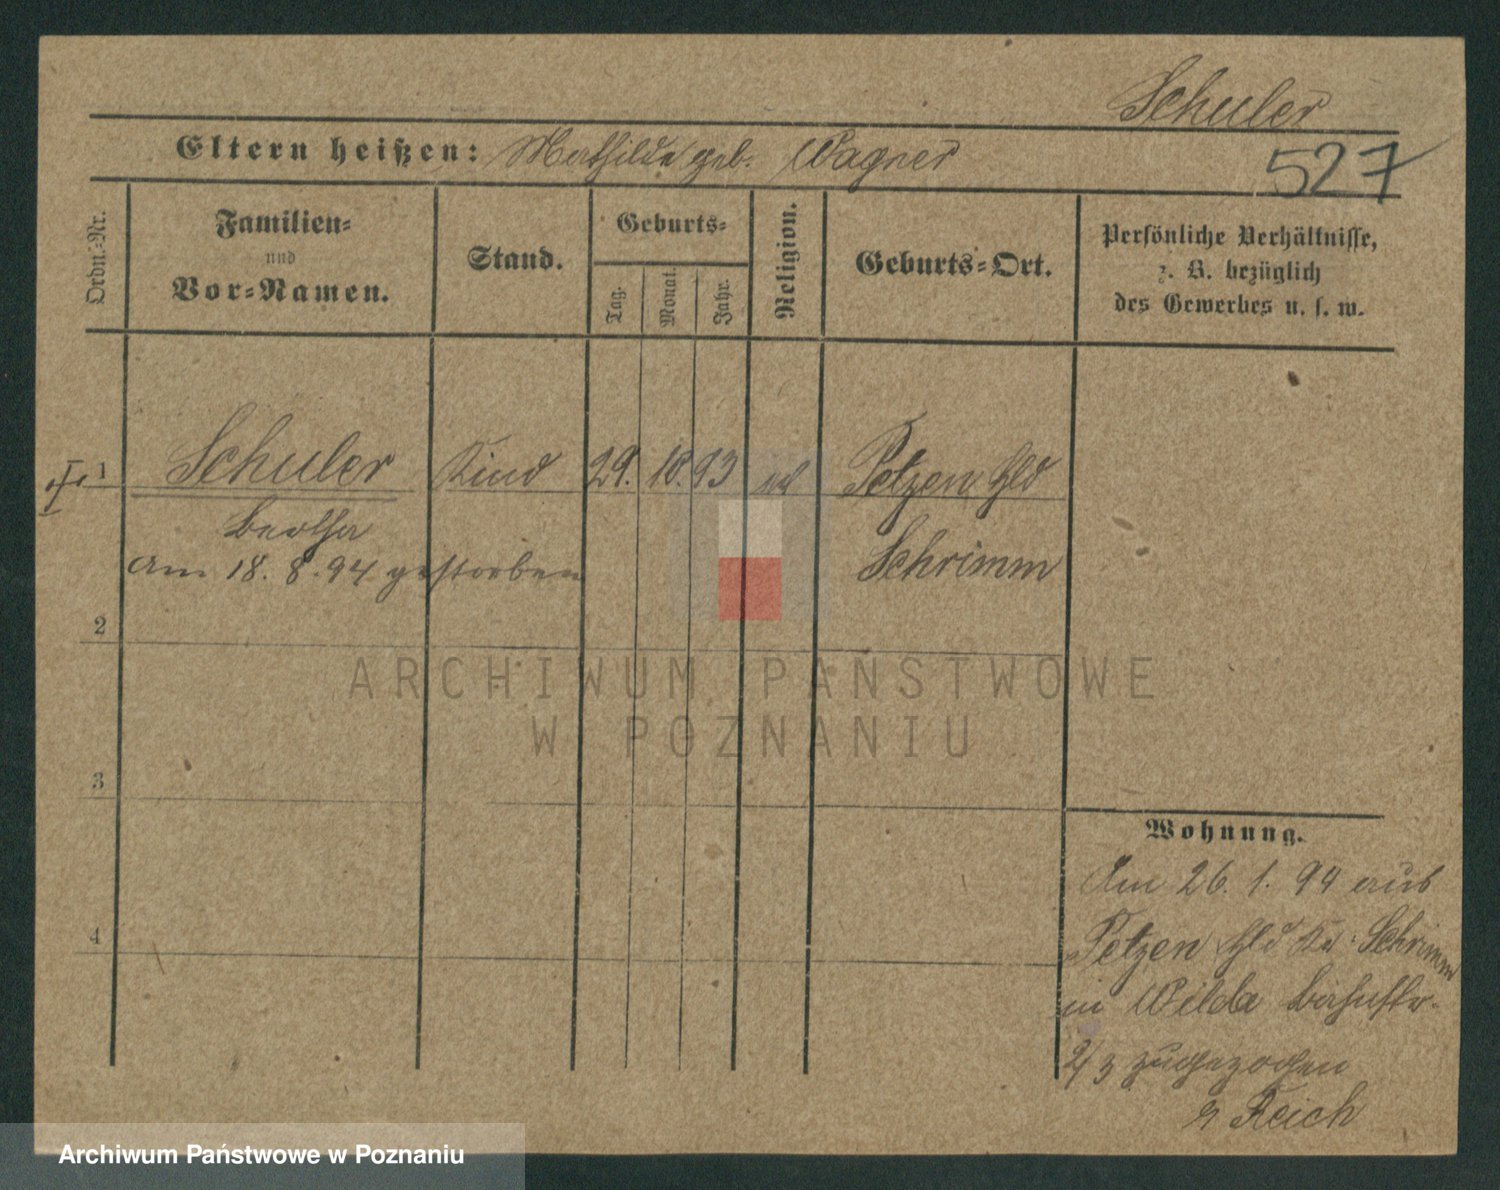 Schuler
Eltern heißen: Mathilde geb. Wagner
527
Ordn.-Nr.
Familien-
und
Vor-Namen.
Stand.
Geburts-
Tag.
Monat.
Jahr.
Religion.
Geburts-Ort.
Persönliche Verhältnisse,
z. B. bezüglich
des Gewerbes u. s. w.
1 Schuler Kind 29. 10. 93 Petzen Hld
Bertha Schrimm
am 18. 8. 94 gestorben
2
3
4
Wohnung.
Am 26. 1. 94 aus
Petzen Hld Kr. Schrimm
in Wilda Bahnstr.
2/3 zugezogen
Reich
ARCHIWUM PAŃSTWOWE
W POZNANIU
Archiwum Państwowe w Poznaniu